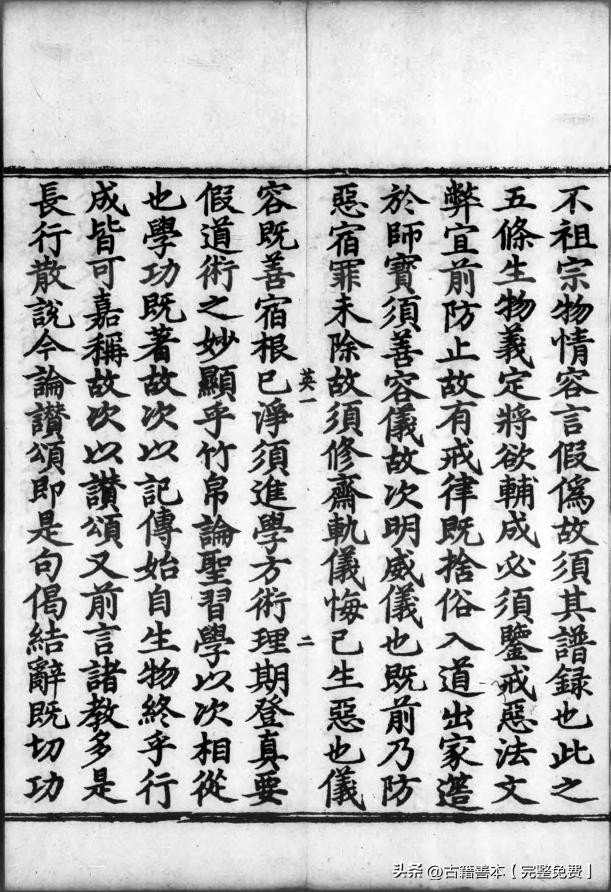 不祖宗物情容言假僞故須其譜録也此之
五條生物義定將欲輔成必須鑒戒惡法文
弊宜前防止故有戒律既捨俗入道出家簉
於師寳須善容儀故次明威儀也既前乃防
惡宿罪未除故須修齋軌儀悔已生惡也儀
英一
二
容既善宿根已淨須進學方術理期登真要
假道術之妙顯乎竹帛論聖習學以次相從
也學功既著故次以記傳始自生物終乎行
成皆可嘉稱故次以讃頌又前言諸教多是
長行散說今論讃頌即是句偈結辭既切功
头条 @古籍善本【完整免费】